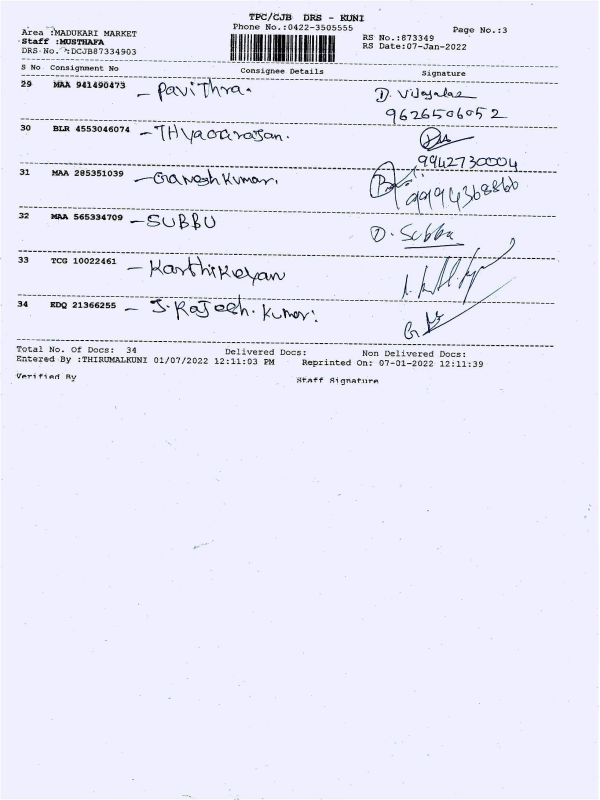 TPC/CJB DRS - KUNI
Phone No.:0422-3505555
Page No.:3
Area :MADUKARI MARKET
Staff :MUSTHAFA
DRS No. :DCJB87334903
RS No.:873349
RS Date:07-Jan-2022
S No Consignment No Consignee Details Signature
29 MAA 941490473 - Pavithra. D. Vijayalaz
9626506052
30 BLR 4553046074 - Thyagarajan.
9942730004
31 MAA 285351039 - Ganesh Kumar. 9994368866
32 MAA 565334709 - SUBBU D. Subba
33 TCG 10022461 - Karthikeyan
34 EDQ 21366255 - J. Rajesh. Kumar.
Total No. Of Docs: 34 Delivered Docs: Non Delivered Docs:
Entered By :THIRUMALKUNI 01/07/2022 12:11:03 PM Reprinted On: 07-01-2022 12:11:39
Verified By Staff Signature